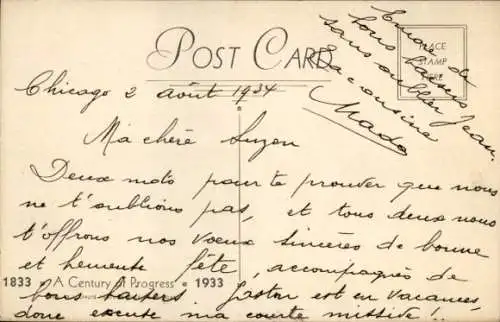 POST CARD
PLACE
STAMP
HERE
Encore de
bons baisers
sans oublier Jean.
Ta cousine
Mado
Chicago 2 août 1934
Ma chère Suzon
Deux mots pour te prouver que nous
ne t'oublions pas, et tous deux nous
t'offrons nos voeux sincères de bonne
et heureuse fête, accompagnés de
bons baisers. Gaston est en vacances,
donc excuse ma courte missive !..
1833 • A Century of Progress • 1933